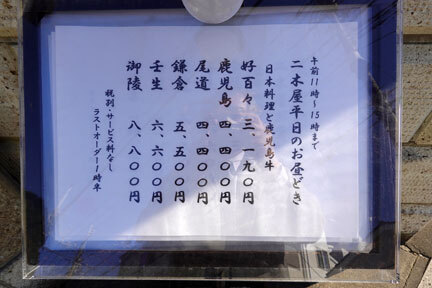 午前11時〜15時まで
二木屋平日のお昼どき
日本料理と鹿児島牛
好百々 三、一九〇円
鹿児島 四、四〇〇円
尾道 四、四〇〇円
鎌倉 五、五〇〇円
壬生 六、六〇〇円
御陵 八、八〇〇円
税別・サービス料なし
ラストオーダー14時半